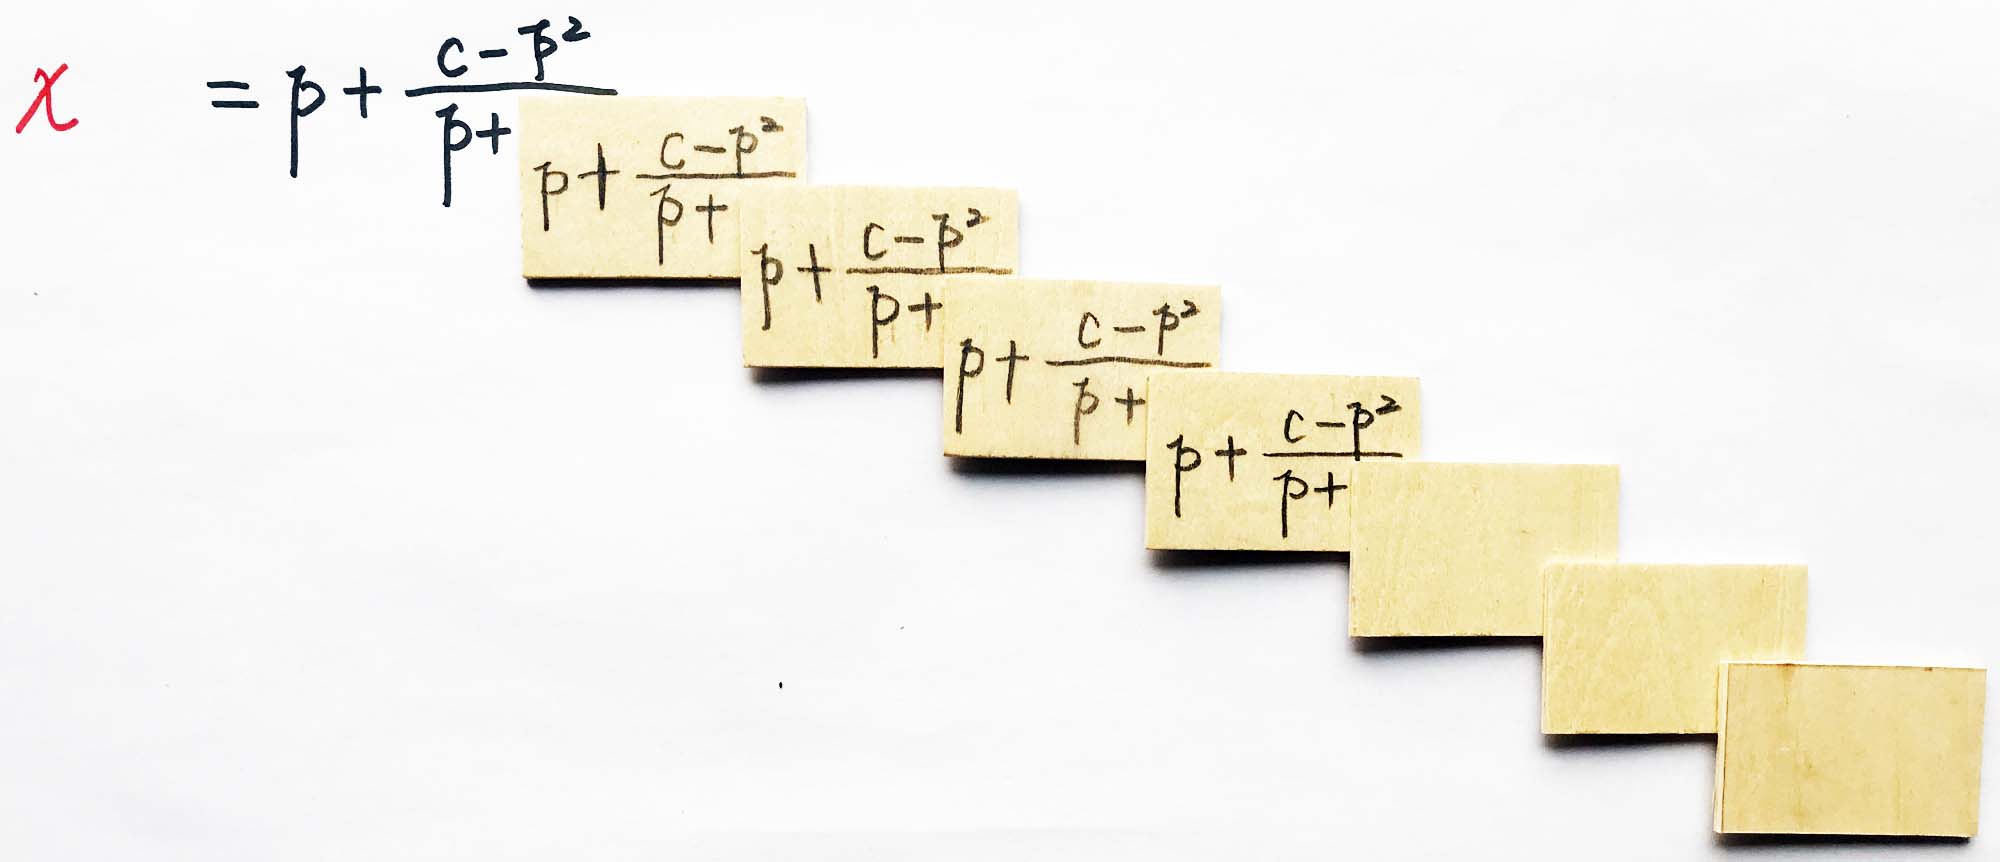 x = p + \frac{c-p^2}{p+}
p + \frac{c-p^2}{p+}
p + \frac{c-p^2}{p+}
p + \frac{c-p^2}{p+}
p + \frac{c-p^2}{p+}